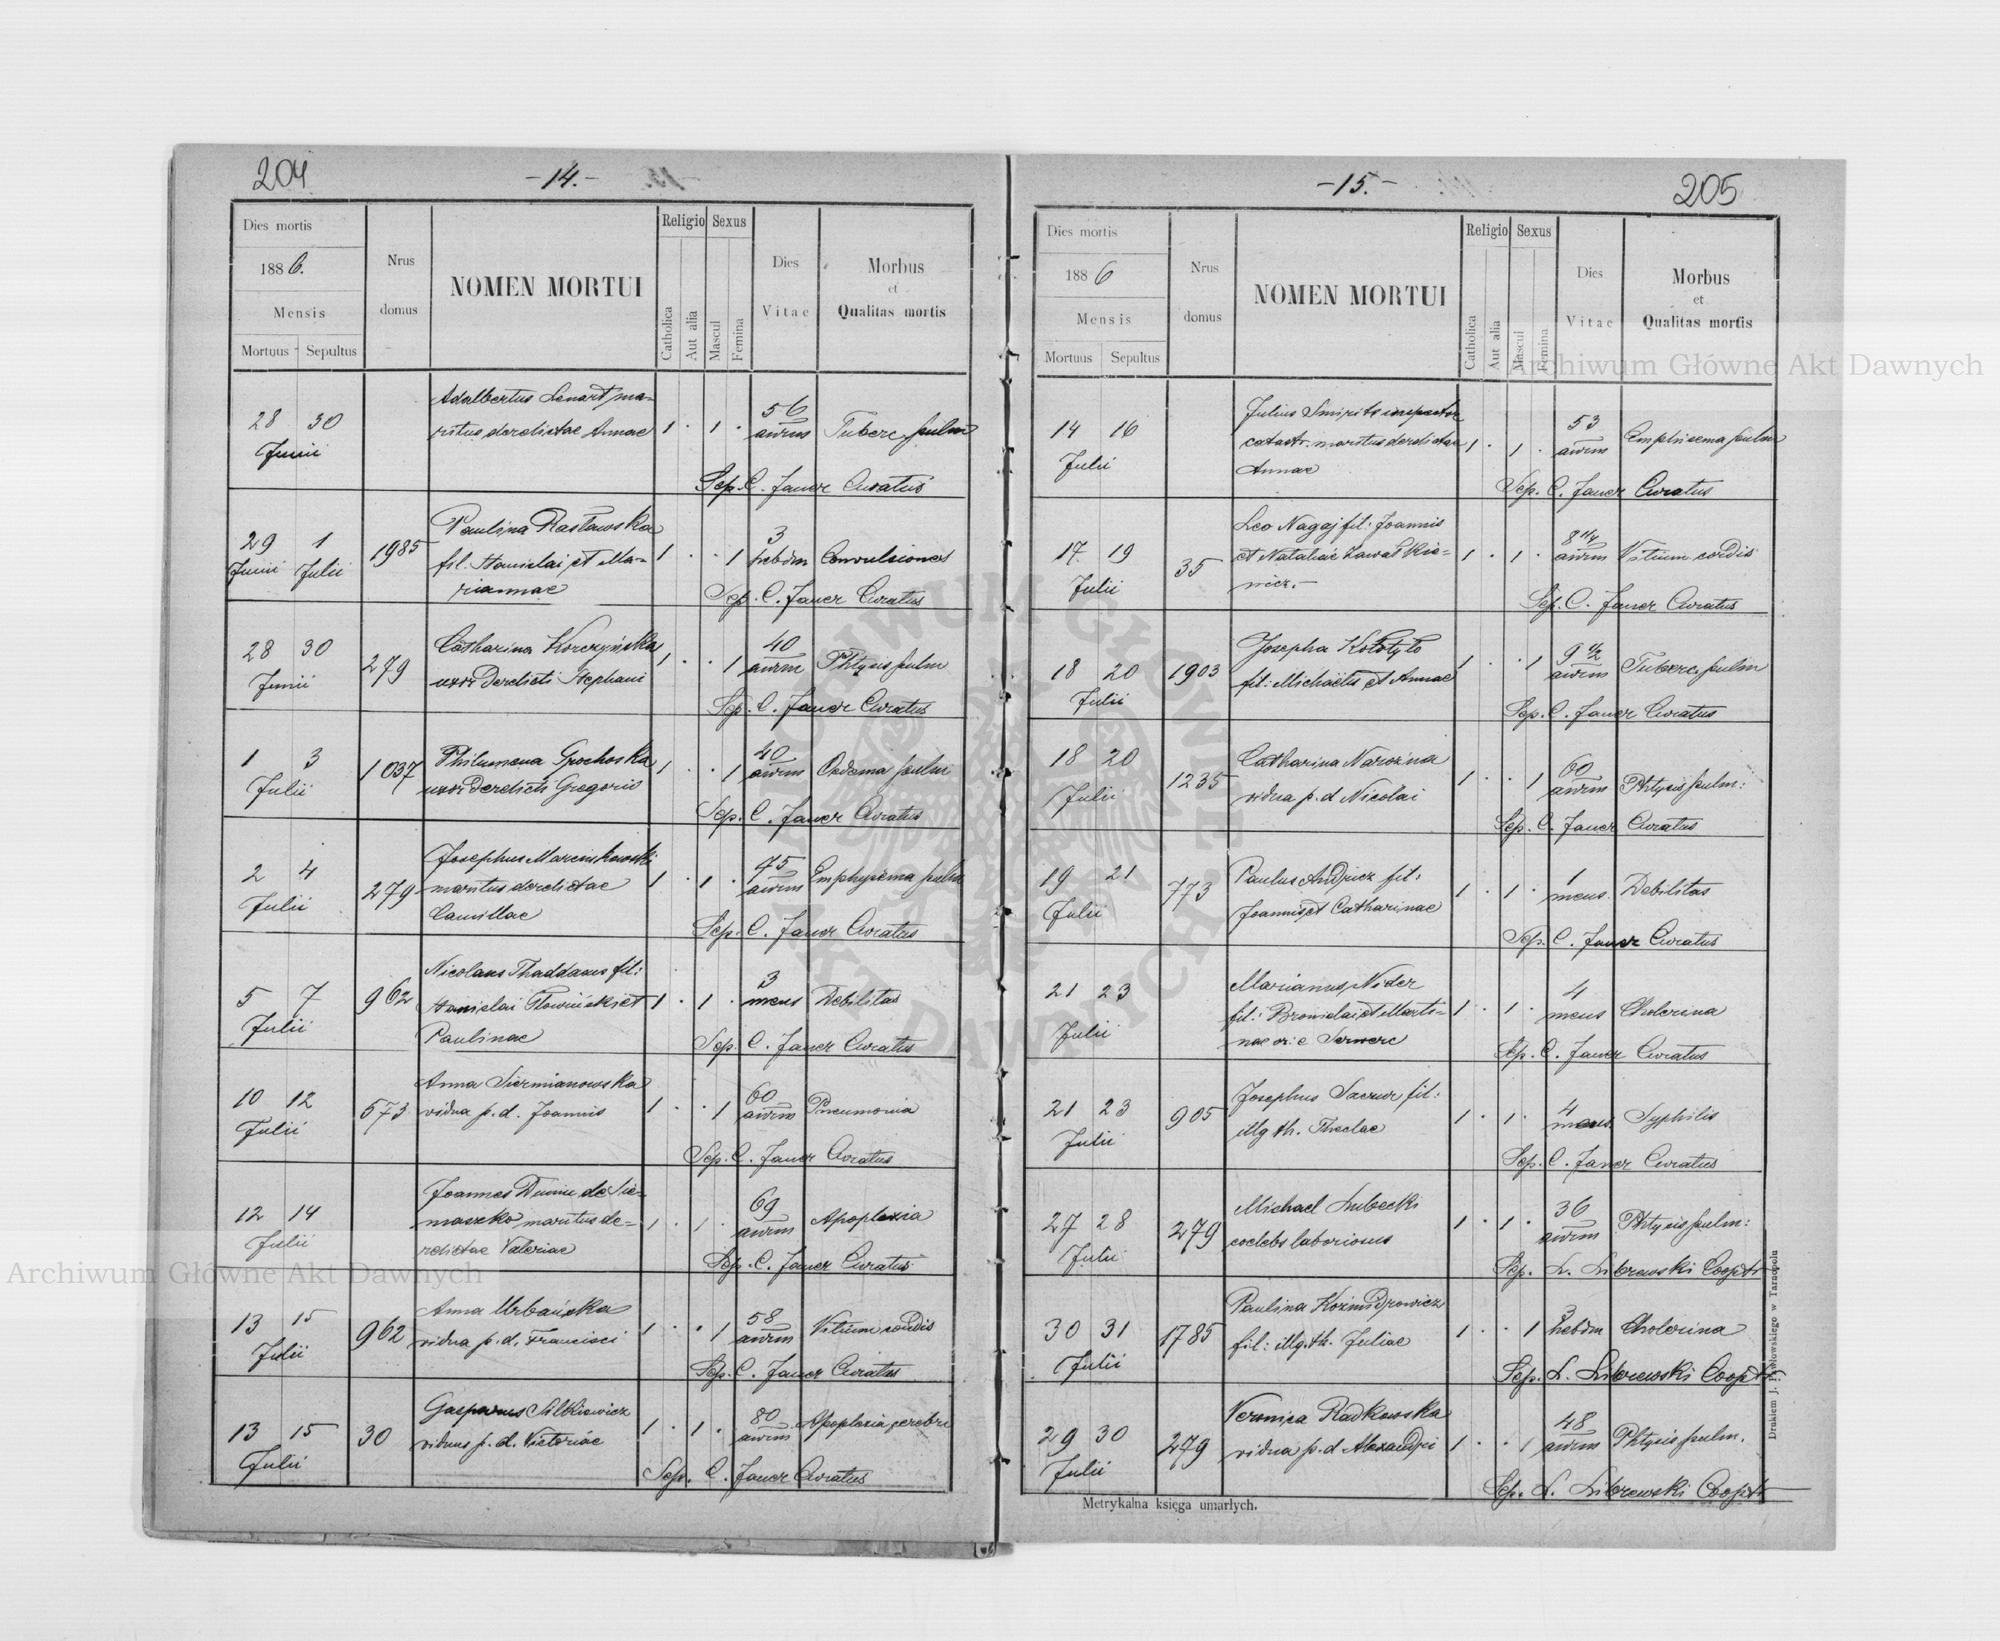 204
-14.-
Dies mortis
1886.
Mensis
Mortuus Sepultus
Nrus
domus
NOMEN MORTUI
Religio
Catholica
Aut alia
Sexus
Mascul
Femina
Dies
Vitae
Morbus
et
Qualitas mortis
28 30
Junii
Adalbertus Lenart ma-
ritus derelictae Annae
1 . 1 .
56
annm
Tuberc. pulm
Sep. C. Jauer Curatus
29 1
Junii Julii
1985
Paulina Rasławska
fil. Stanislai et Ma-
riannae
1 . . 1
3
hebdm
Convulsiones
Sep. C. Jauer Curatus
28 30
Junii
279
Catharina Korczyńska
uxor derelicti Stephani
1 . . 1
40
annm
Phtysis pulm
Sep. C. Jauer Curatus
1 3
Julii
1037
Philumena Grochoska
uxor derelicti Gregorii
1 . . 1
40
annm
Oedema pulm
Sep. C. Jauer Curatus
2 4
Julii
279
Josephus Marcinkowski
maritus derelictae
Camillae
1 . 1 .
45
annm
Emphysema pulm
Sep. C. Jauer Curatus
5 7
Julii
962
Nicolaus Thaddaeus fil:
Stanislai Słowiński et
Paulinae
1 . 1 .
3
mens
Debilitas
Sep. C. Jauer Curatus
10 12
Julii
573
Anna Siermianowska
vidua p. d. Joannis
1 . . 1
60
annm
Pneumonia
Sep. C. Jauer Curatus
12 14
Julii
Joannes de Sie-
maszko maritus de-
relictae Valeriae
1 . 1 .
69
annm
Apoplexia
Sep. C. Jauer Curatus
13 15
Julii
962
Anna Urbańska
vidua p. d. Francisci
1 . . 1
58
annm
Vitium cordis
Sep. C. Jauer Curatus
13 15
Julii
30
Gasparus Silkiewicz
viduus p. d. Victoriae
1 . 1 .
80
annm
Apoplexia cerebri
Sep. C. Jauer Curatus
-15.-
205
Dies mortis
1886
Mensis
Mortuus Sepultus
Nrus
domus
NOMEN MORTUI
Religio
Catholica
Aut alia
Sexus
Mascul
Femina
Dies
Vitae
Morbus
et
Qualitas mortis
14 16
Julii
Julius inspector
catastr. maritus derelictae
Annae
1 . 1 .
53
annm
Emphisema pulm
Sep. C. Jauer Curatus
17 19
Julii
35
Leo Nagaj fil: Joannis
et Nataliae Zawałkie-
wicz.-
1 . 1 .
8 1/4
annm
Vitium cordis
Sep. C. Jauer Curatus
18 20
Julii
1903
Josepha Kołotyło
fil: Michaëlis et Annae
1 . . 1
9 1/2
annm
Tuberc. pulm
Sep. C. Jauer Curatus
18 20
Julii
1235
Catharina Narozna
vidua p. d Nicolai
1 . . 1
60
annm
Phtysis pulm:
Sep. C. Jauer Curatus
19 21
Julii
773
Paulus Andricz fil:
Joannis et Catharinae
1 . 1 .
1
mens.
Debilitas
Sep. C. Jauer Curatus
21 23
Julii
Marianus Nider
fil: Bronislai et Marti-
nae
1 . 1 .
4
mens
Cholerina
Sep. C. Jauer Curatus
21 23
Julii
905
Josephus Saczur fil:
illg th. Theclae
1 . 1 .
4
mens.
Syphilis
Sep. C. Jauer Curatus
27 28
Julii
279
Michael Lubecki
coelebs laboriosus
1 . 1 .
36
annm
Phtysis pulm:
Sep. L. Librewski Cooptr
30 31
Julii
1785
Paulina
fil: illg. th. Juliae
1 . . 1
3
hebdm
Cholerina
Sep. L. Librewski Cooptr
29 30
Julii
279
Veronica Radkowska
vidua p. d Alexandri
1 . . 1
48
annm
Phtysis pulm.
Sep. L. Librewski Cooptr
Metrykalna księga umarłych.
Drukiem J. Pawłowskiego w Tarnopolu
Archiwum Główne Akt Dawnych
Archiwum Główne Akt Dawnych
ARCHIWUM GŁÓWNE AKT DAWNYCH